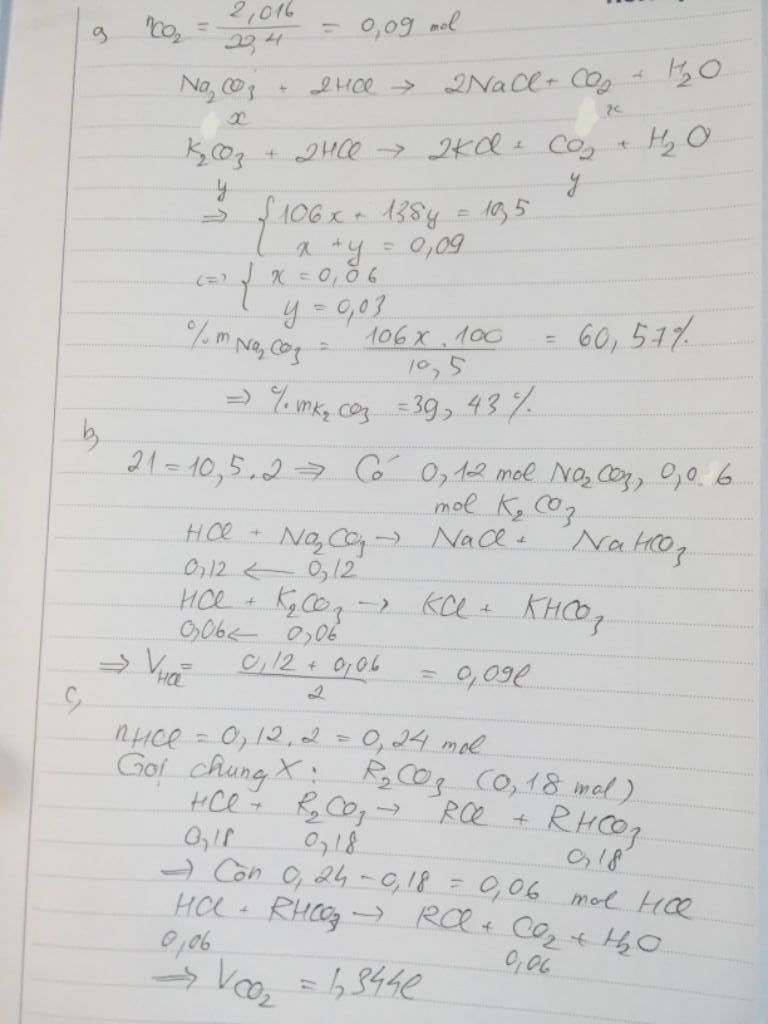 a, nCO2 = 2,016 / 22,4 = 0,09 mol
Na2CO3 + 2HCl → 2NaCl + CO2 + H2O
x x
K2CO3 + 2HCl → 2KCl + CO2 + H2O
y y
=> { 106x + 138y = 10,5
x + y = 0,09
<=> { x = 0,06
y = 0,03
% m Na2CO3 = 106x . 100 / 10,5 = 60,57%
=> % mK2CO3 = 39,43 %
b,
21 = 10,5 . 2 => Có 0,12 mol Na2CO3, 0,06
mol K2CO3
HCl + Na2CO3 → NaCl + NaHCO3
0,12 ← 0,12
HCl + K2CO3 → KCl + KHCO3
0,06 ← 0,06
=> VHCl = 0,12 + 0,06 / 2 = 0,09l
c,
nHCl = 0,12 . 2 = 0,24 mol
Gọi chung X : R2CO3 (0,18 mol)
HCl + R2CO3 → RCl + RHCO3
0,18 0,18 0,18
=> Còn 0,24 - 0,18 = 0,06 mol HCl
HCl + RHCO3 → RCl + CO2 + H2O
0,06 0,06
=> VCO2 = 1,344l